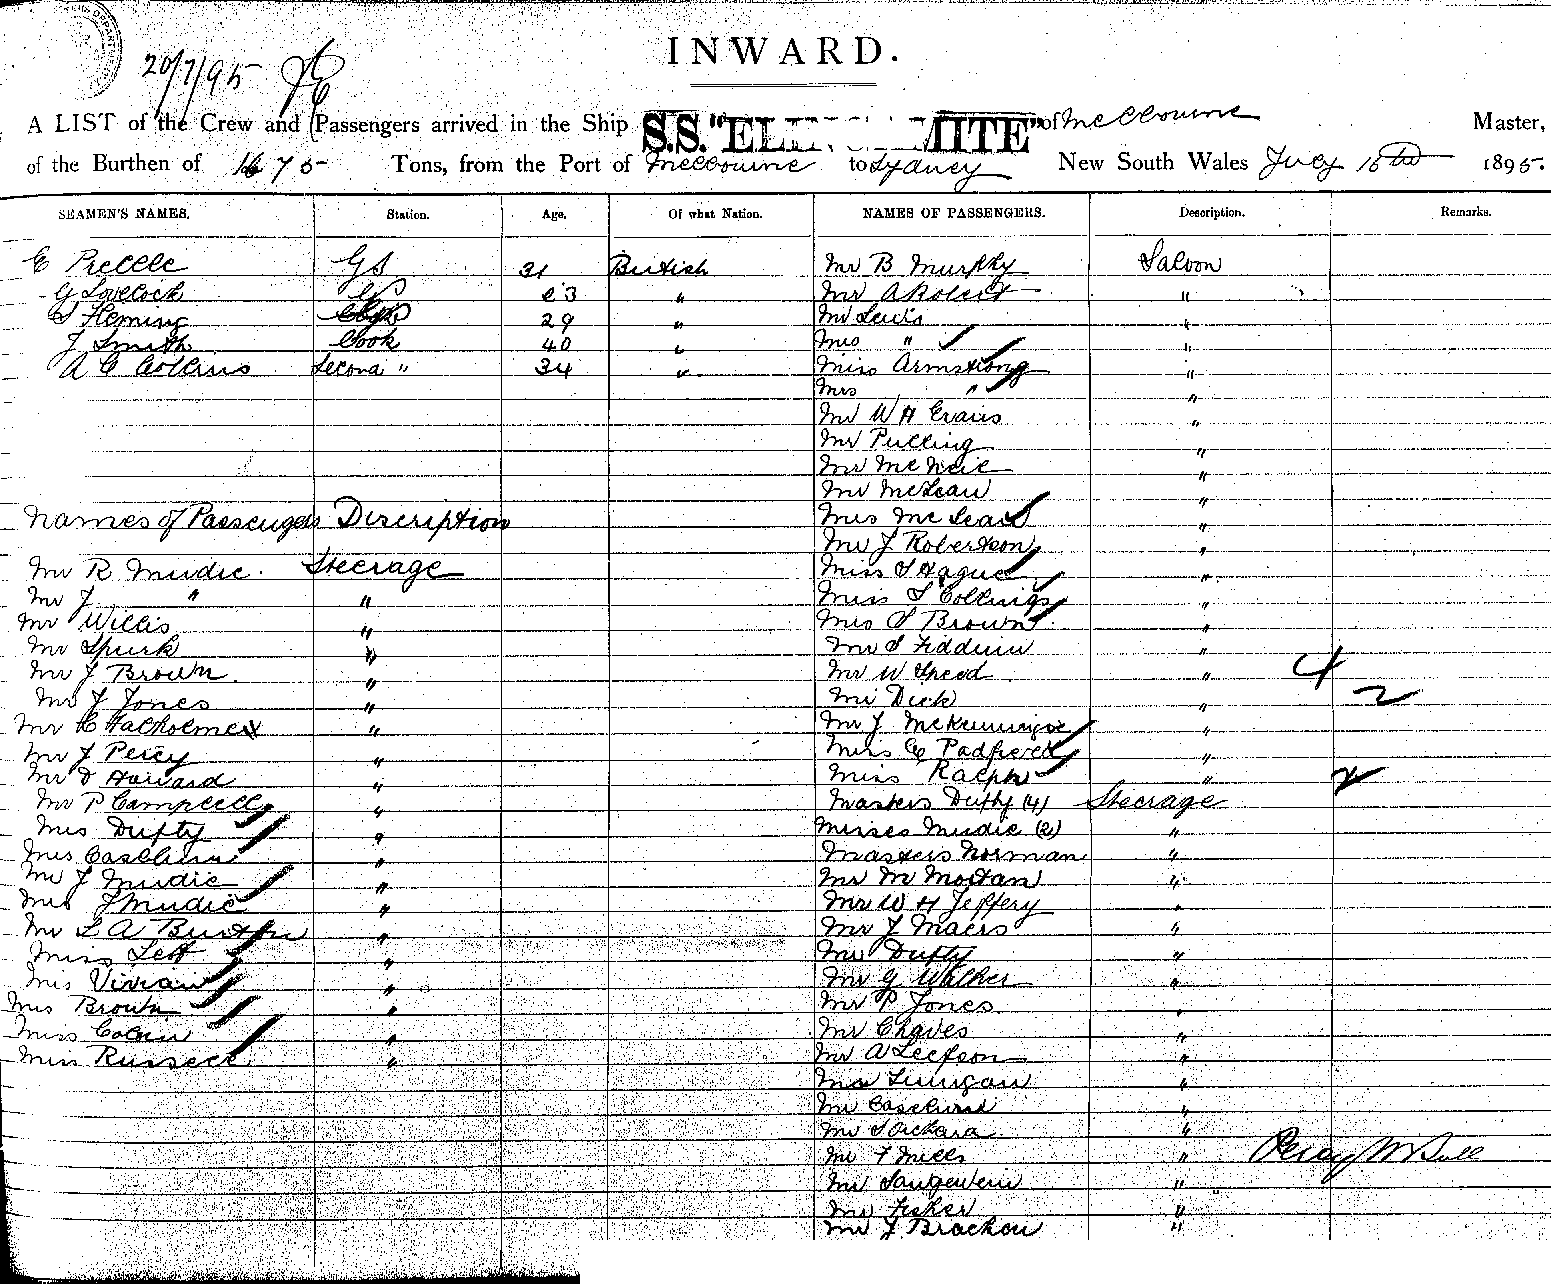 INWARD.
20/7/95
A LIST of the Crew and Passengers arrived in the Ship S.S. "EL MITE" of Melbourne Master,
of the Burthen of 1675 Tons, from the Port of Melbourne to Sydney New South Wales July 1895.
SEAMEN'S NAMES. Station. Age. Of what Nation. NAMES OF PASSENGERS. Description. Remarks.
E GS 31 British Mr B Murphy Saloon
G Lovelock 23 " Mr A Robert "
S Fleming 29 " Mr Lewis "
J Smith Cook 40 " Mrs " "
A C Collins Second " 34 " Miss Armstrong "
Mrs " "
Mr W H Evans "
Mr Pulling "
Mr "
Mr McLean "
Names of Passengers Discription Mrs McLean "
Mr J Robertson "
Mr R Mudie. Steerage Miss S Hague "
Mr J " " Miss S Collings "
Mr Willis " Miss S Brown "
Mr Spurk " Mr S "
Mr J Brown. " Mr W Speed " 4
Mr J Jones " Mr Dick " 2
Mr C " Mr J "
Mr J Percy " Miss C Padfield "
Mr D Howard Miss Ralph " 2
Mr P Campbell " Masters Dufty (4) Steerage
Mrs Dufty " Misses Mudie (2) "
Mrs " Masters Norman "
Mr J Mudie " Mr M "
Mrs J Mudie " Mr W H Jeffery "
Mr L A " Mr J Maers "
Miss " Mr Dufty "
Mrs Vivian " Mr G Walker "
Mrs Brown " Mr P Jones "
Miss " Mr Chaves "
Miss Russell " Mr A Leefson "
"
Mr "
Mr "
Mr F Mills " Percy
Mr "
Mr Fisher "
Mr J "